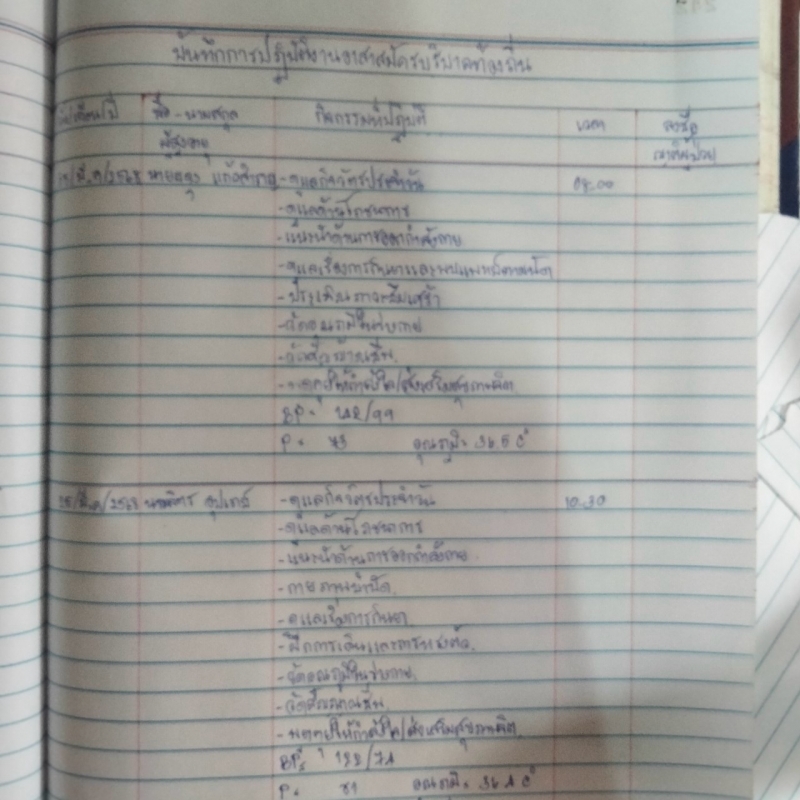 บันทึกการปฏิบัติงานอาสาสมัครบริบาลท้องถิ่น
ชื่อ - นามสกุล กิจกรรมที่ปฏิบัติ เวลา ลงชื่อ
ผู้สูงอายุ ญาติผู้ป่วย
/มี.ค/2568 - ดูแลกิจวัตรประจำวัน 09.00
- ดูแลด้านโภชนาการ
- แนะนำด้านการออกกำลังกาย
- ดูแลเรื่องการกินยาและพบแพทย์ตามนัด
- ประเมินภาวะซึมเศร้า
- วัดอุณภูมิในร่างกาย
- วัดสัญญาณชีพ
- พูดคุยให้กำลังใจ/ส่งเสริมสุขภาพจิต
BP =
P = 73 อุณภูมิ = 36.5 C°
/มี.ค/2568 - ดูแลกิจวัตรประจำวัน 10.30
- ดูแลด้านโภชนาการ
- แนะนำด้านการออกกำลังกาย
- กายภาพบำบัด
- ดูแลเรื่องการกินยา
- ฝึกการเดินและการทรงตัว
- วัดอุณภูมิในร่างกาย
- วัดสัญญาณชีพ
- พูดคุยให้กำลังใจ/ส่งเสริมสุขภาพจิต
BP = 122/71
P = 81 อุณภูมิ = 36.1 C°